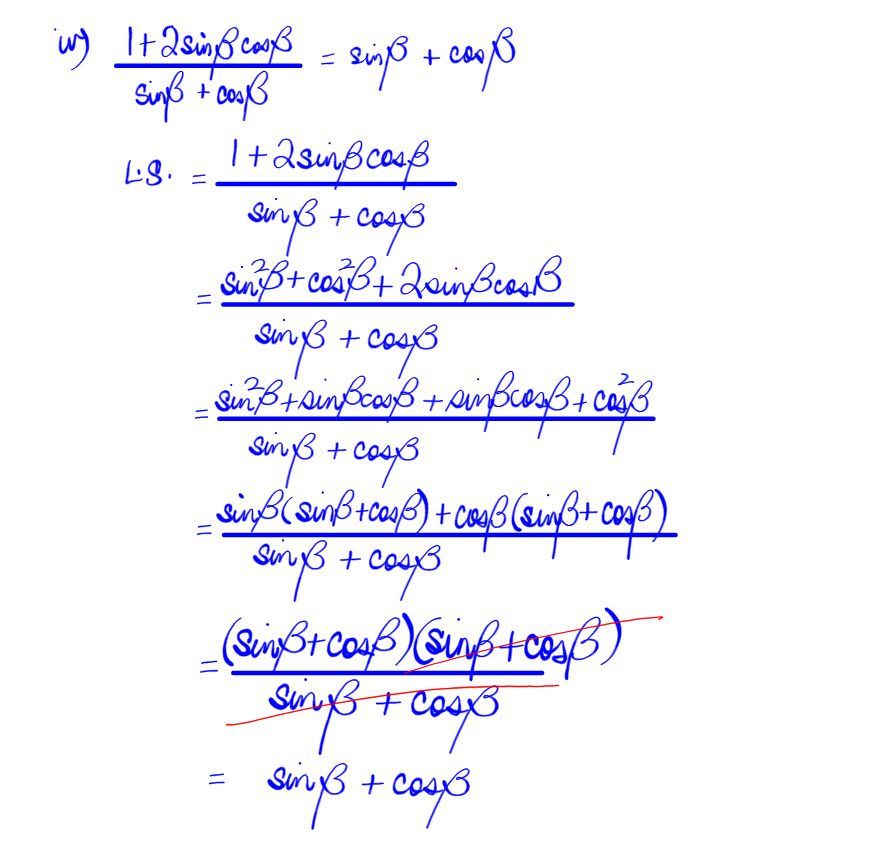 iv) 1+2sinβcosβ / sinβ + cosβ = sinβ + cosβ
L.S. = 1+2sinβcosβ / sinβ + cosβ
= sin²β+cos²β+2sinβcosβ / sinβ + cosβ
= sin²β+sinβcosβ+sinβcosβ+cos²β / sinβ + cosβ
= sinβ(sinβ+cosβ)+cosβ(sinβ+cosβ) / sinβ + cosβ
= (sinβ+cosβ)(sinβ+cosβ) / sinβ + cosβ
= sinβ + cosβ